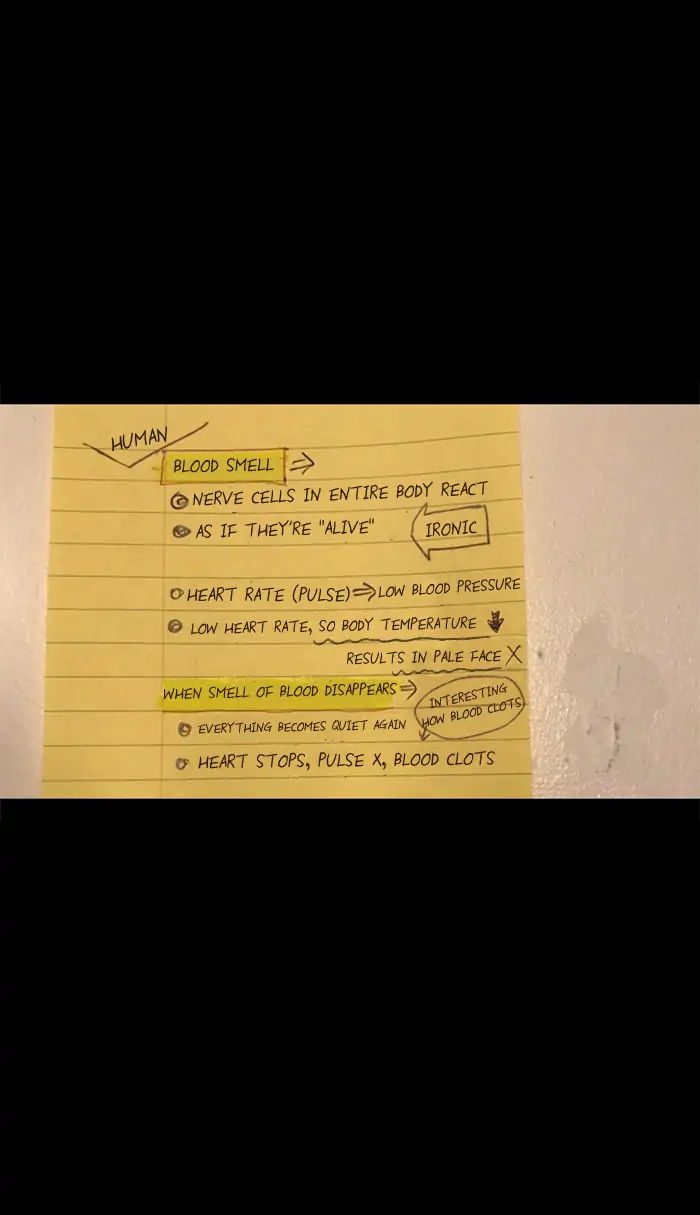 HUMAN
BLOOD SMELL ⇒
NERVE CELLS IN ENTIRE BODY REACT
AS IF THEY'RE "ALIVE"
IRONIC
HEART RATE (PULSE) ⇒ LOW BLOOD PRESSURE
LOW HEART RATE, SO BODY TEMPERATURE ↓
RESULTS IN PALE FACE X
WHEN SMELL OF BLOOD DISAPPEARS ⇒
INTERESTING
HOW BLOOD CLOTS
EVERYTHING BECOMES QUIET AGAIN
HEART STOPS, PULSE X, BLOOD CLOTS